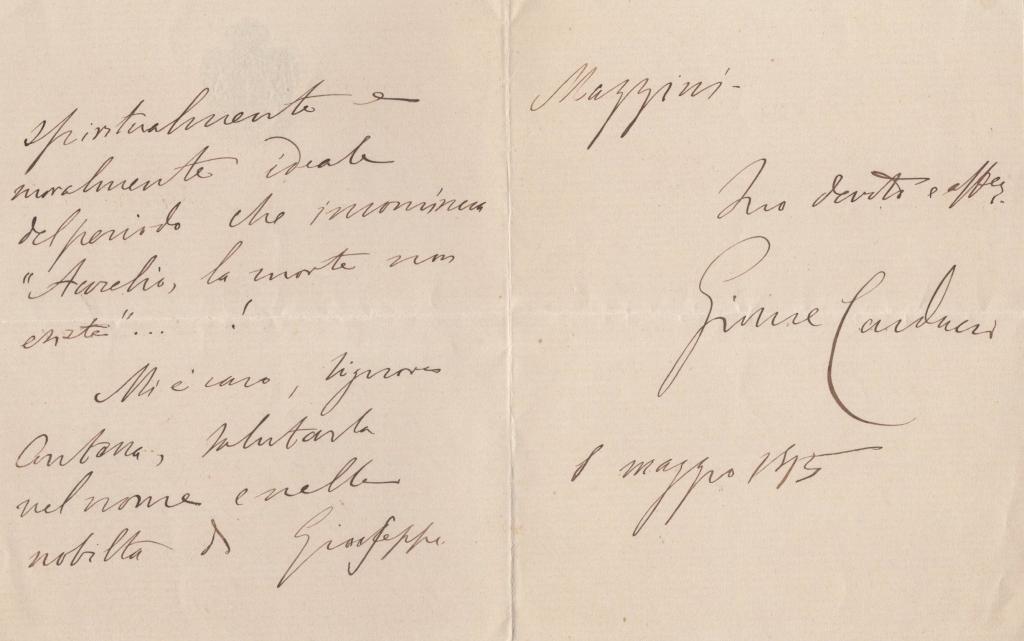 spiritualmente e
moralmente ideale
del periodo che incomincia
"Aurelio, la morte non
esiste"... !
Mi è caro, signora
contessa, salutarla
nel nome e nella
nobiltà di Giuseppe
Mazzini.
Suo devoto e affez.
Giosue Carducci
maggio